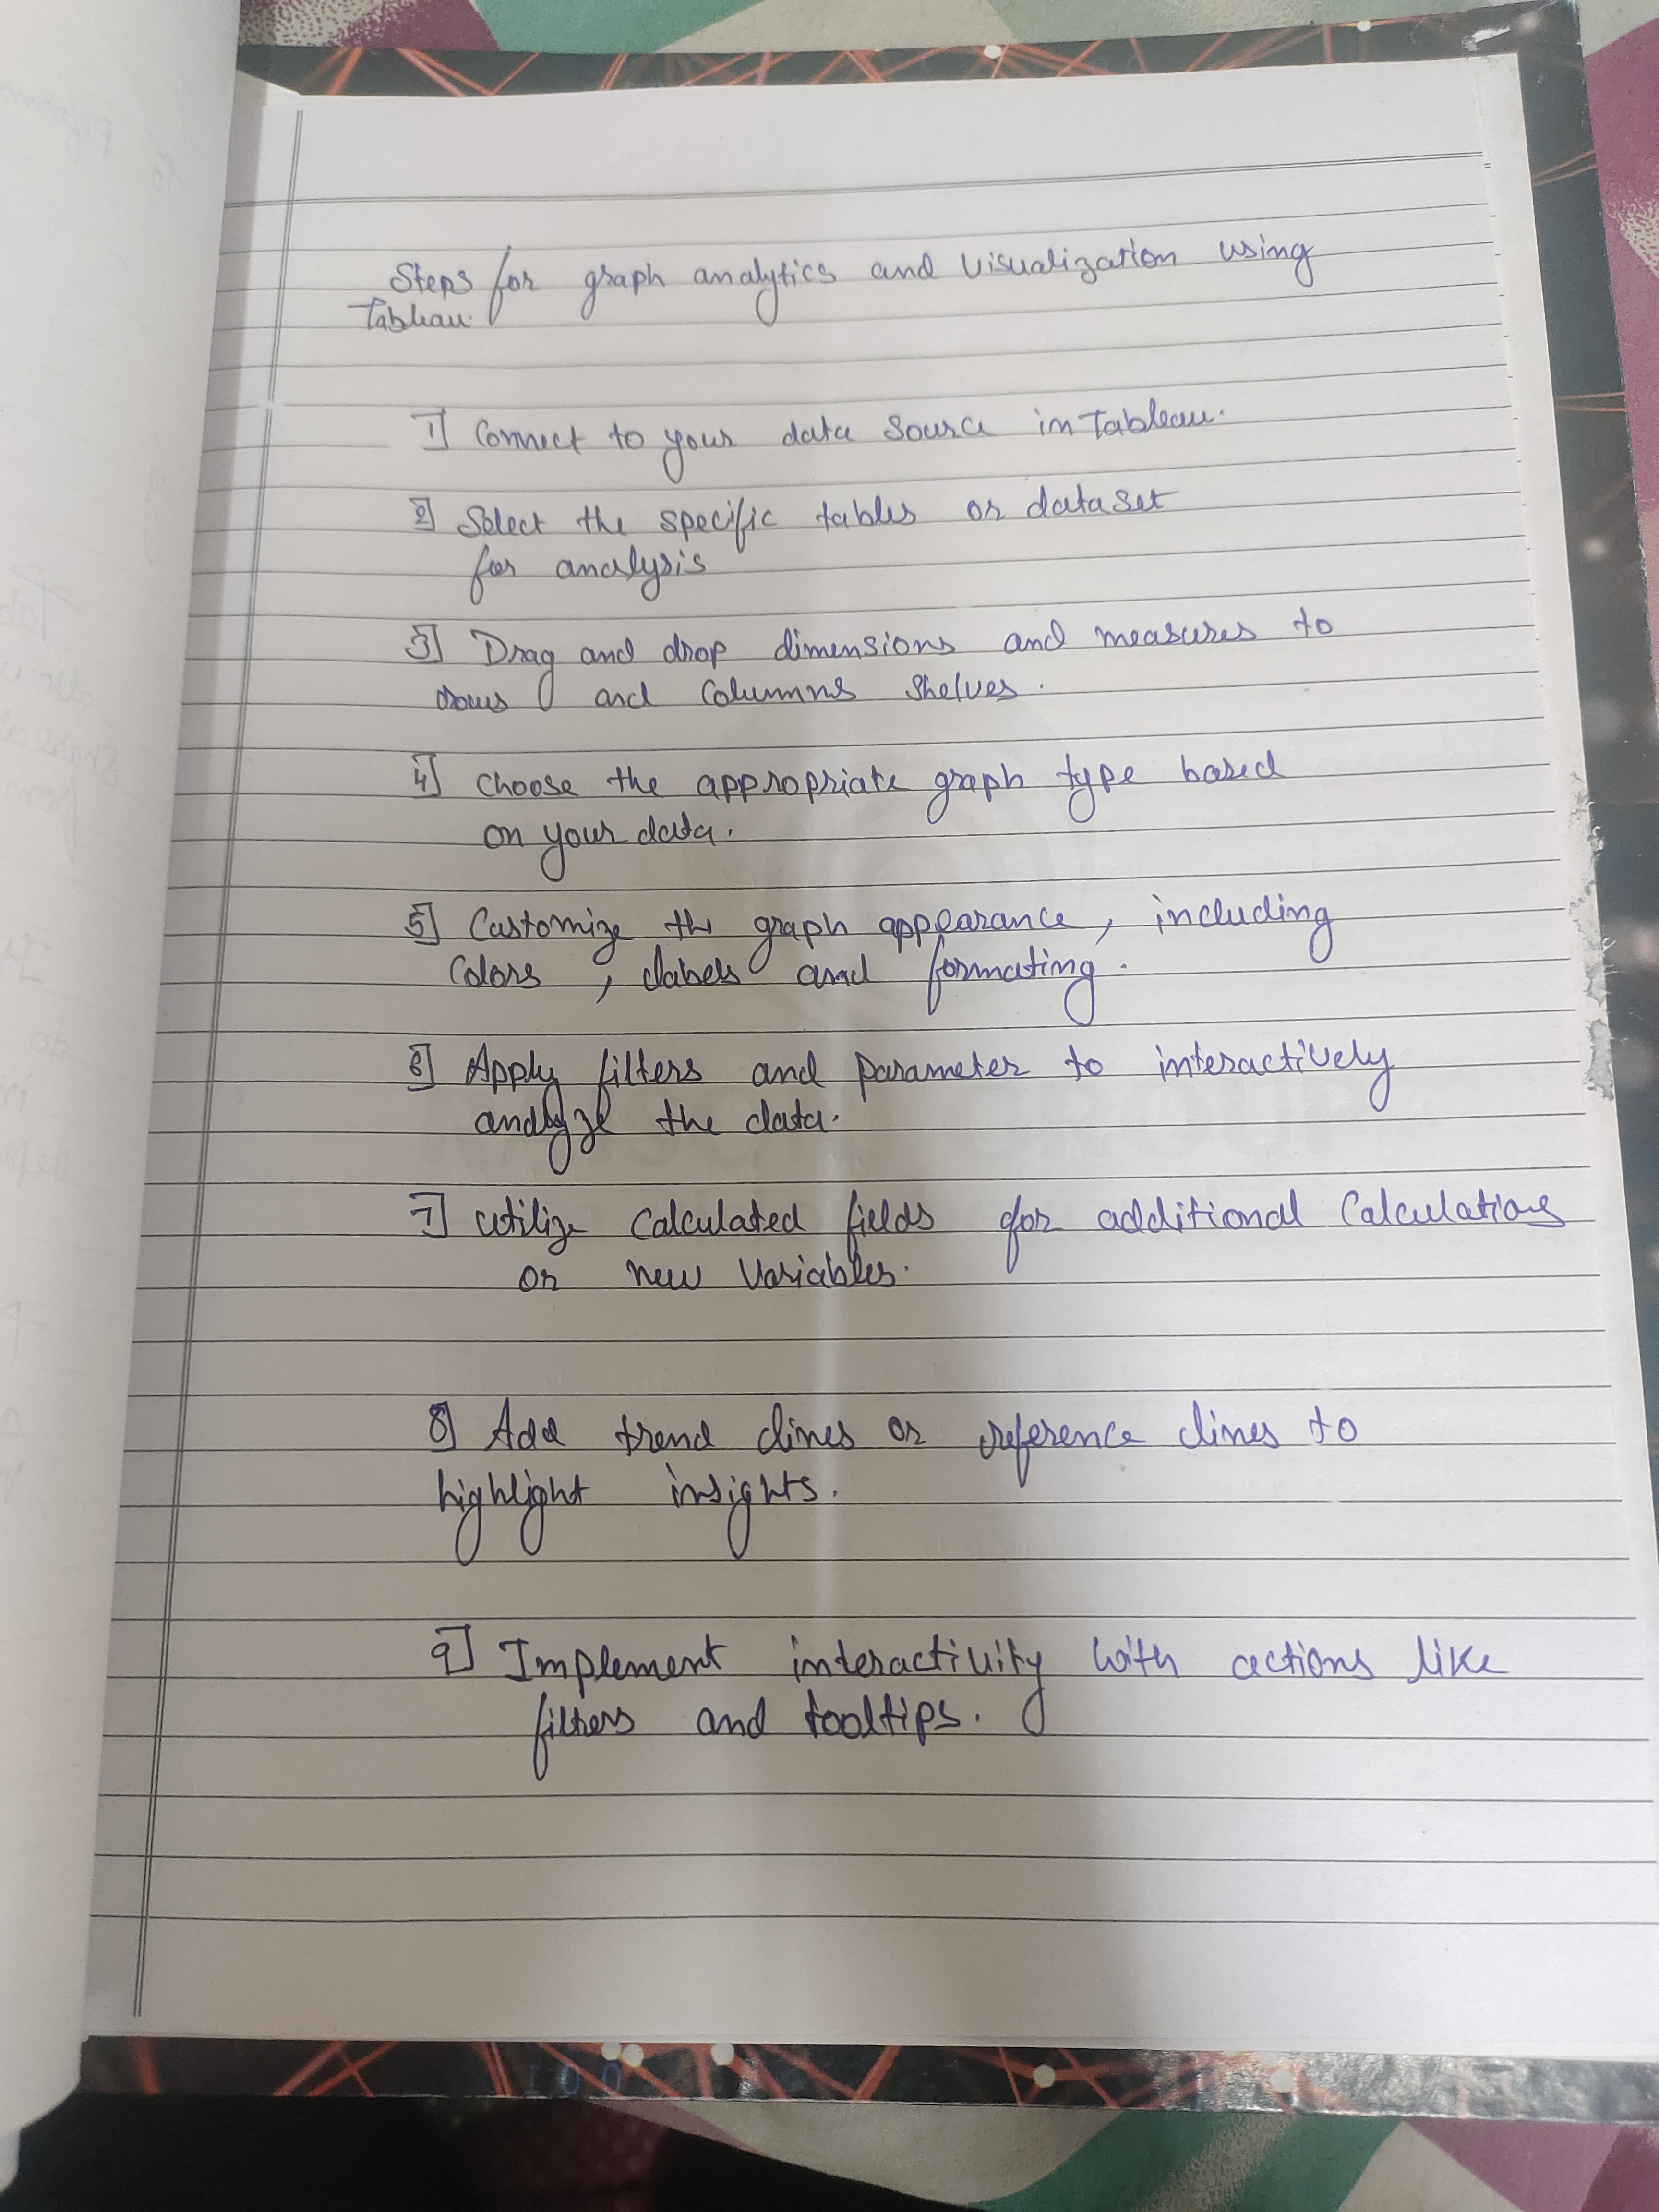 Steps for graph analytics and visualization using
Tableau.
1] Connect to your data source in Tableau.
2] Select the specific tables or dataset
for analysis
3] Drag and drop dimensions and measures to
rows and columns shelves.
4] Choose the appropriate graph type based
on your data.
5] Customize the graph appearance, including
Colors, labels and formating.
6] Apply filters and parameter to interactively
analyze the data.
7] Utilize Calculated fields for additional Calculations
or new Variables.
8] Add trend lines or reference lines to
highlight insights.
9] Implement interactivity with actions like
filters and tooltips.